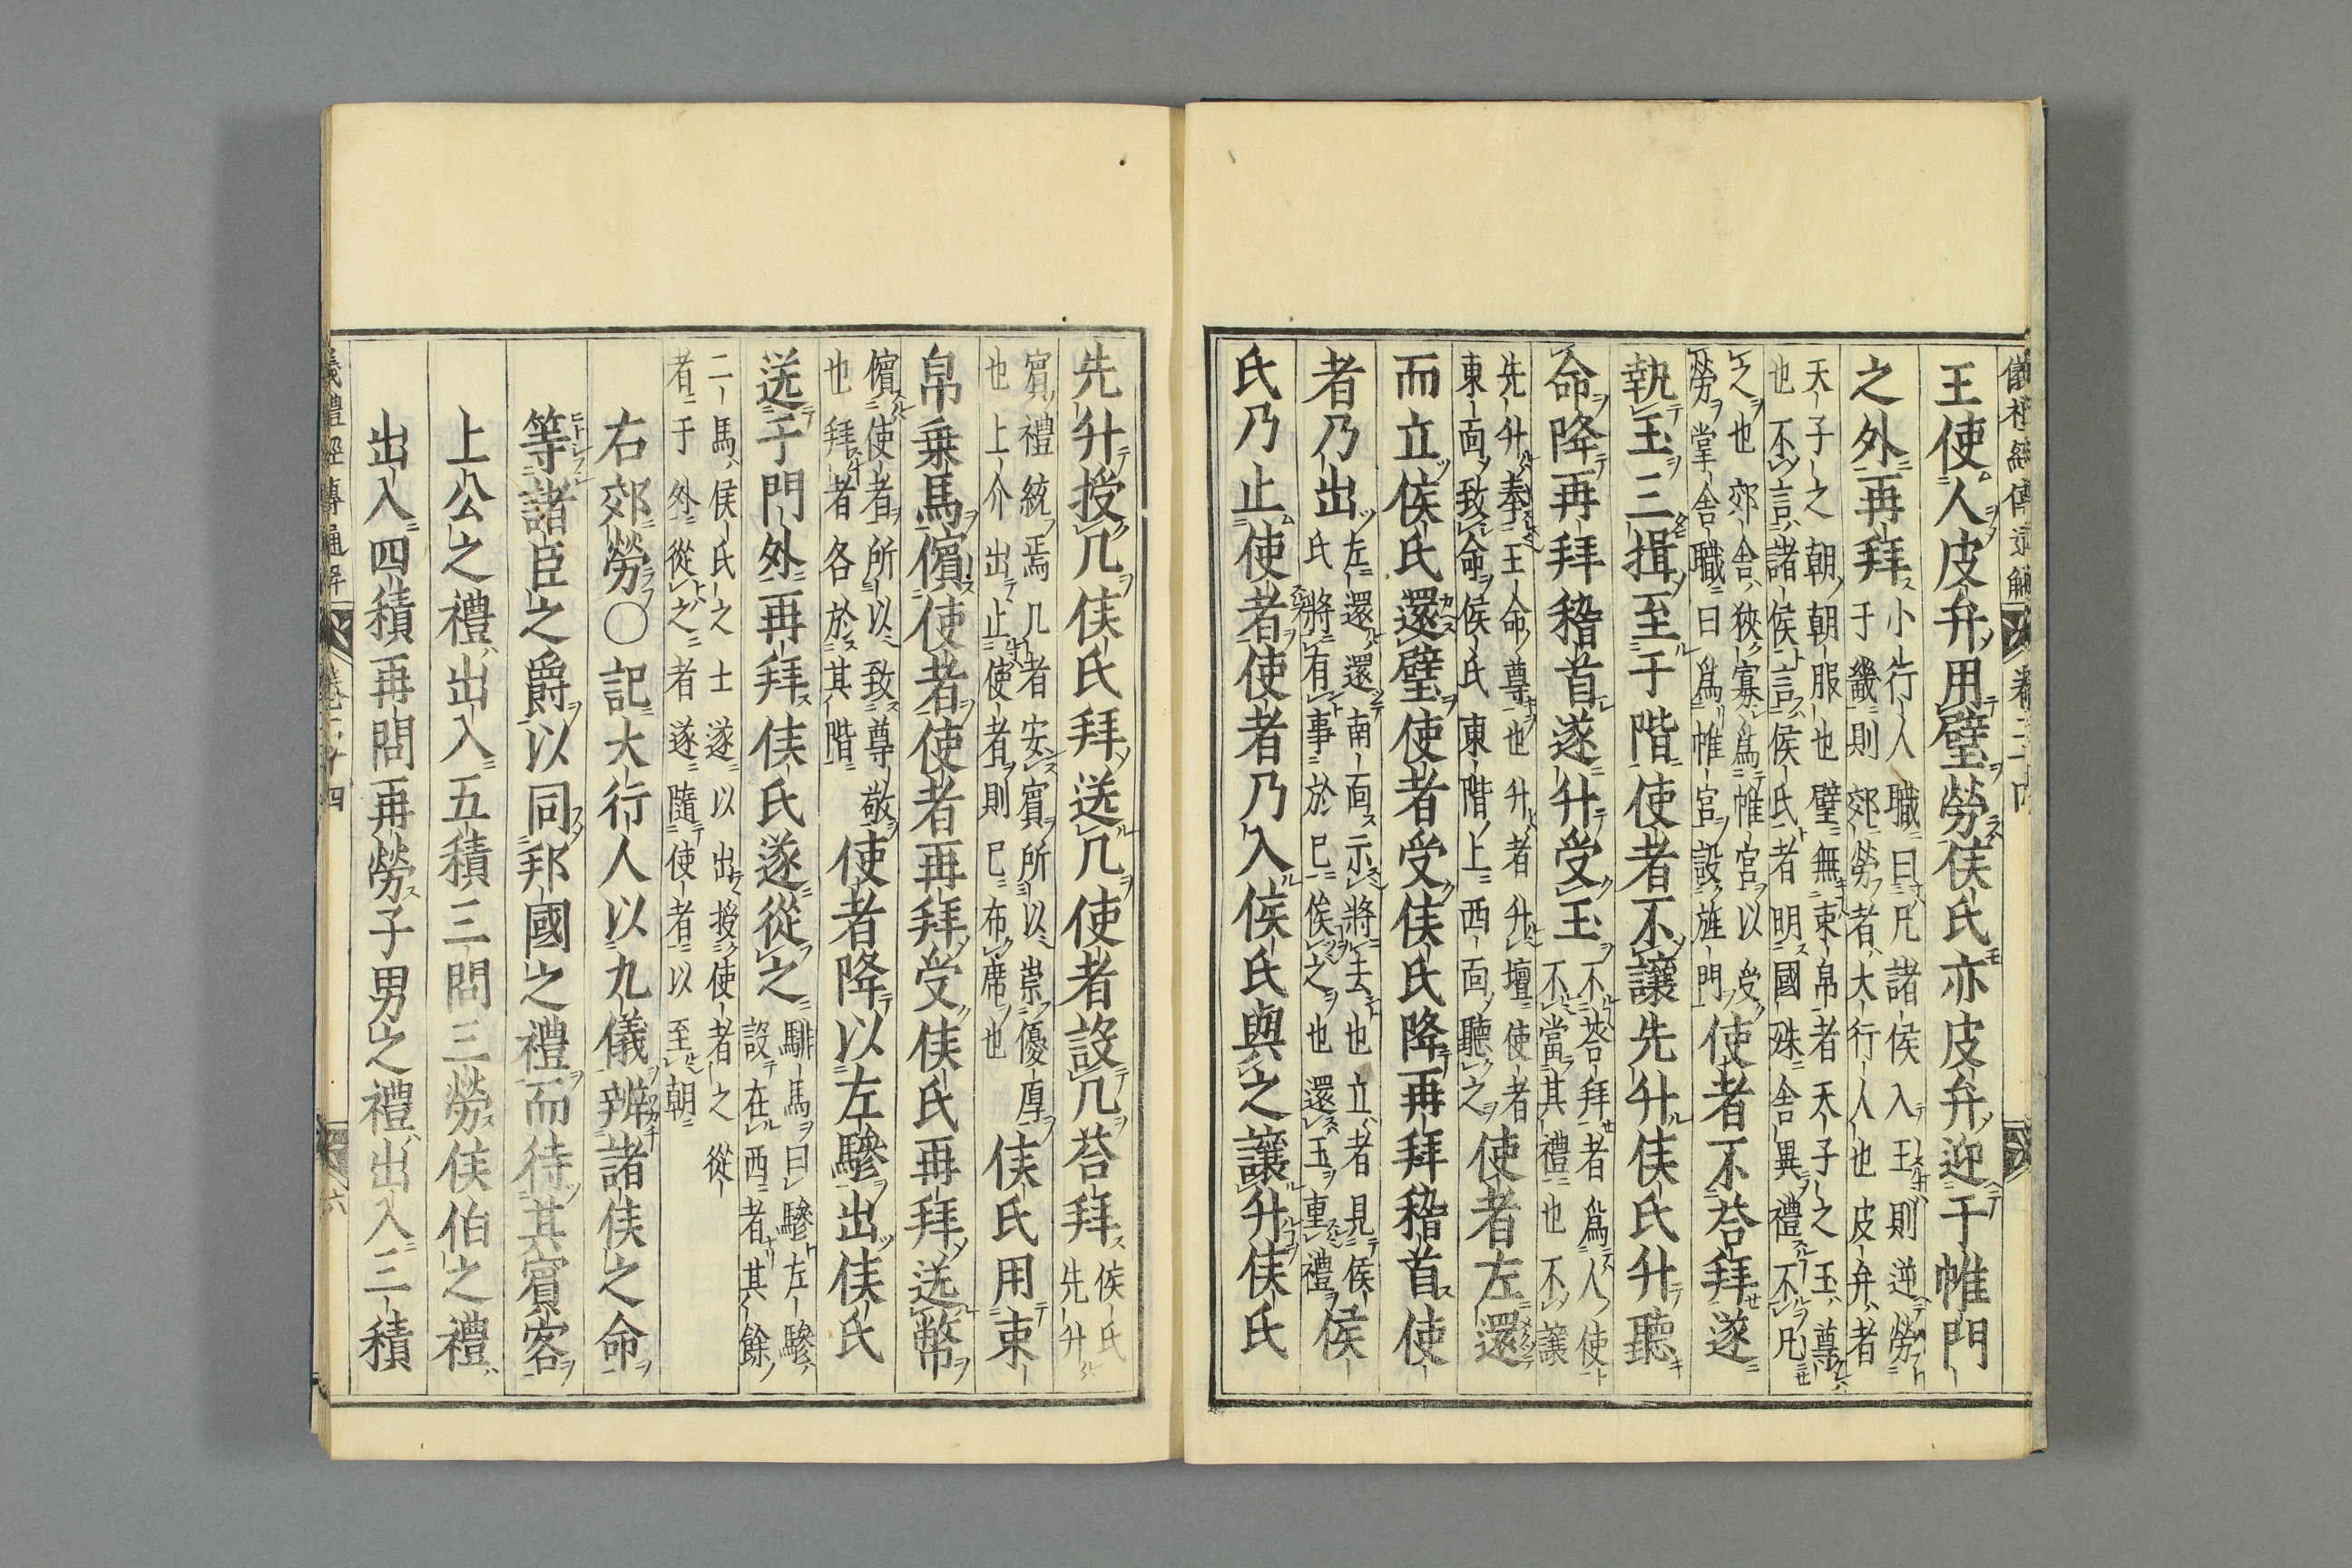 儀禮經傳通解 卷二十四
王使人皮弁用璧勞侯氏亦皮弁迎于帷門
之外再拜
小行人職曰凡諸侯入王則逆勞
于畿則郊勞者大行人也皮弁者
天子之朝朝服也璧無束帛者天子之玉尊
也不言諸侯言侯氏者明國殊舍異禮不凡
之也郊舍狹寡爲帷宮以受
勞掌舍職曰爲帷宮設旌門
使者不荅拜遂
執玉三揖至于階使者不讓先升侯氏升聽
命降再拜稽首遂升受玉
不荅拜者爲人使
不當其禮也不讓
先升奉王命尊也升者升壇使者
東面致命侯氏東階上西面聽之
使者左還
而立侯氏還璧使者受侯氏降再拜稽首使
者乃出
左還還南面示將去也立者見侯
氏將有事於已俟之也還玉重禮
侯
氏乃止使者使者乃入侯氏與之讓升侯氏
先升授几侯氏拜送几使者設几荅拜
侯氏
先升
賓禮統焉几者安賓所以崇優厚
也上介出止使者則已布席也
侯氏用束
帛乗馬儐使者使者再拜受侯氏再拜送幣
儐使者所以致尊敬
也拜者各於其階
使者降以左驂出侯氏
送于門外再拜侯氏遂從之
騑馬曰驂左驂
設在西者其餘
二馬侯氏之士遂以出授使者之從
者于外從之者遂隨使者以至朝
右郊勞〇記大行人以九儀辨諸侯之命
等諸臣之爵以同邦國之禮而待其賓客
上公之禮出入五積三問三勞侯伯之禮
出入四積再問再勞子男之禮出入三積
儀禮經傳通解 卷二十四 六